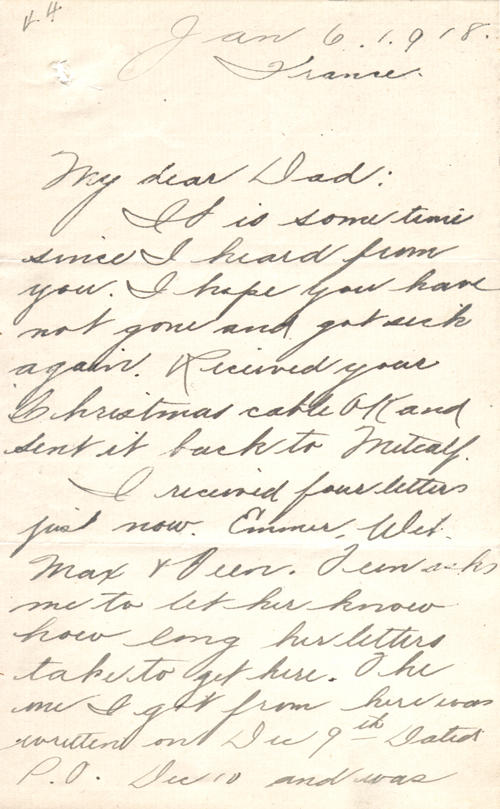 Jan 6. 1918.
France.
My dear Dad:
It is some time
since I heard from
you. I hope you have
not gone and got sick
again. Received your
Christmas cable OK and
sent it back to Metcalf.
I received four letters
just now. Emmer,
Max &
me to let her know
how long her letters
take to get here. The
one I got from here was
written on Dec 9th Dated
P.O. Dec 10 and was